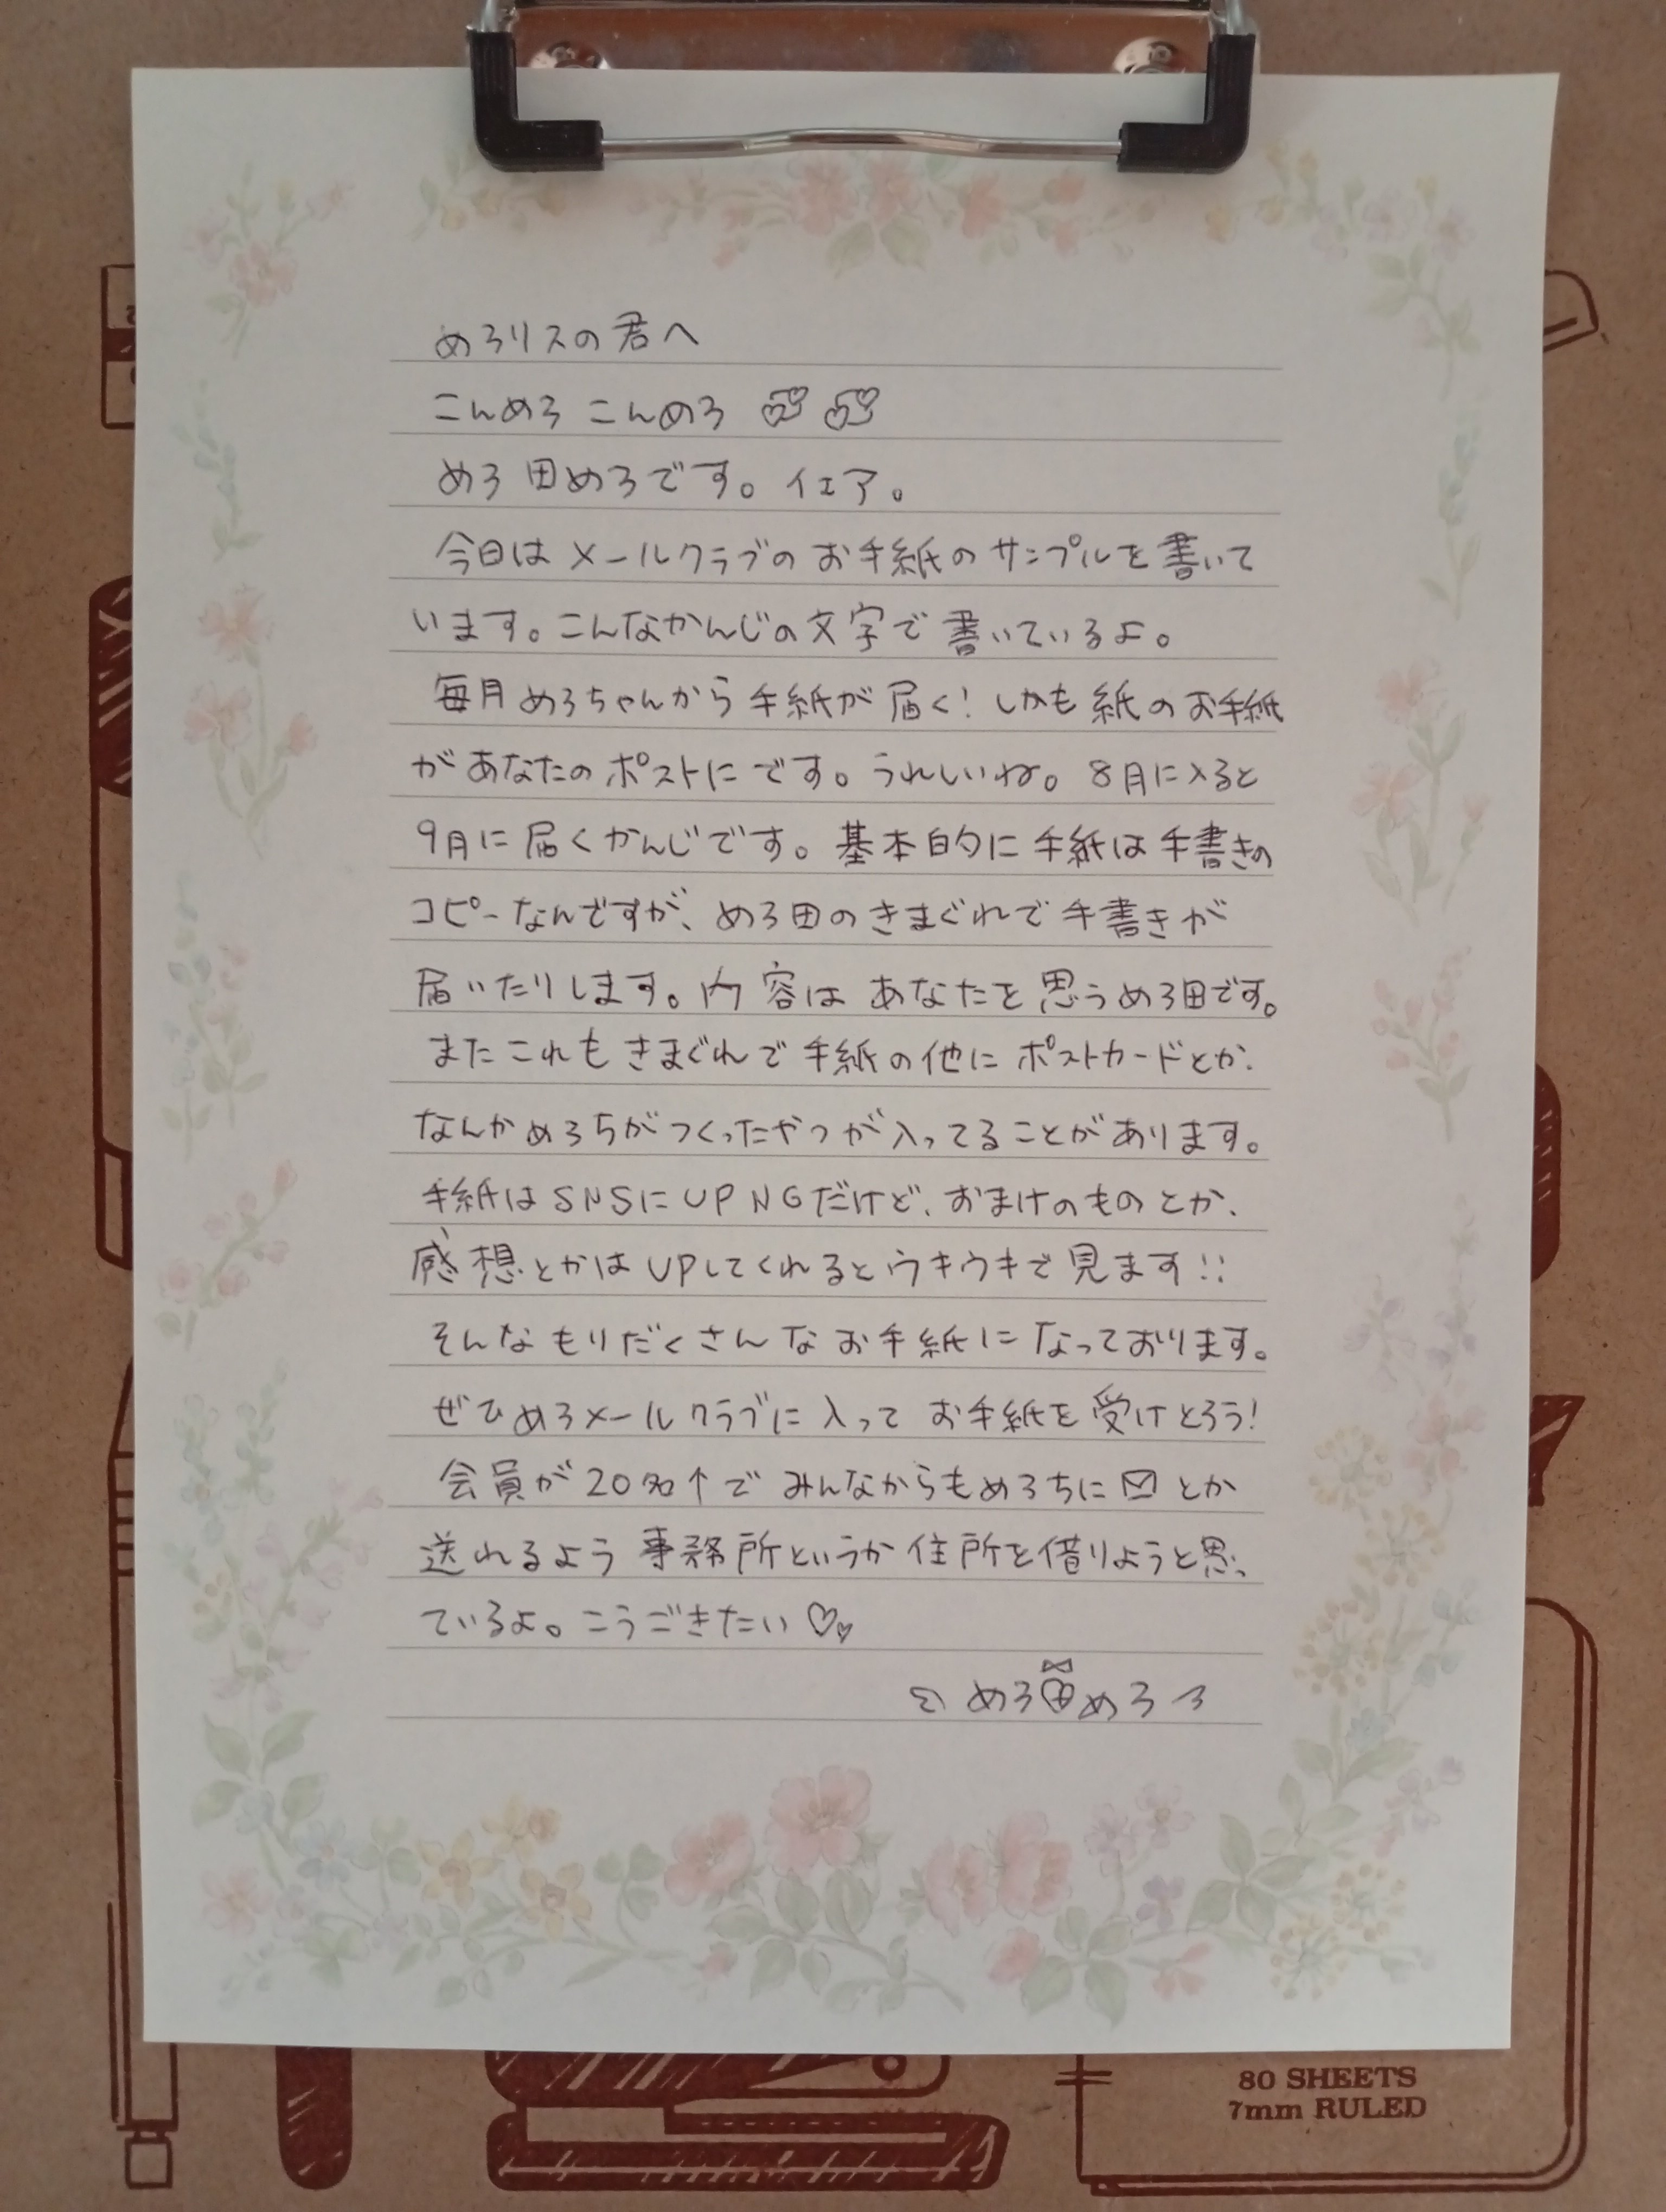 めろリスの君へ
こんめろ こんめろ
めろ田めろです。イェア。
今日はメールクラブのお手紙のサンプルを書いて
います。こんなかんじの文字で書いているよ。
毎月めろちゃんから手紙が届く！しかも紙のお手紙
があなたのポストにです。うれしいね。8月に入ると
9月に届くかんじです。基本的に手紙は手書きの
コピーなんですが、めろ田のきまぐれで手書きが
届いたりします。内容はあなたを思うめろ田です。
またこれもきまぐれで手紙の他にポストカードとか、
なんかめろちがつくったやつが入ってることがあります。
手紙はSNSにUP NGだけど、おまけのものとか、
感想とかはUPしてくれるとウキウキで見ます!!
そんなもりだくさんなお手紙になっております。
ぜひめろメールクラブに入ってお手紙を受けとろう！
会員が20名↑でみんなからもめろちに✉とか
送れるよう事務所というか住所を借りようと思っ
ているよ。こうごきたい♡♡
めろ田めろ
80 SHEETS
7mm RULED